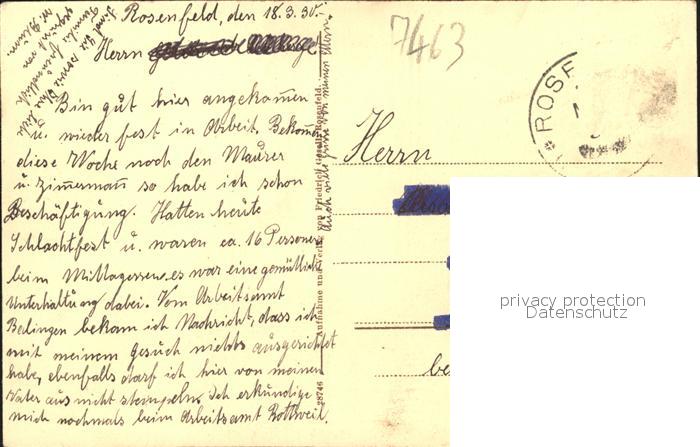 Rosenfeld, den 18.3.30.
Herrn
Bin gut hier angekommen
u. wieder fest in Arbeit, Bekomme
diese Woche noch den Maurer
u. Zimmermann so habe ich schon
Beschäftigung. Hatten heute
Schlachtfest u. waren ca. 16 Personen
beim Mittagessen. es war eine gemütliche
Unterhaltung dabei. Vom Arbeitsamt
Balingen bekam ich Nachricht, dass ich
mit meinem Gesuch nichts ausgerichtet
habe, ebenfalls darf ich hier von meinem
Vater aus nicht stempeln. Ich erkundige
mich nochmals beim Arbeitsamt Rottweil.
Sind Sie sowie Ihre
Familie freundlich
gegrüßt von
Auch viele Grüße von meinen Eltern.
28746 Aufnahme und Verlag von Friedrich Gsell, Rosenfeld.
7463
ROSF
Herrn
privacy protection
Datenschutz
be